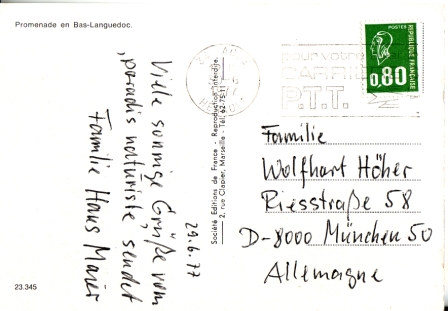 Promenade en Bas-Languedoc.
Viele sonnige Grüße vom
„paradis naturiste sendet
Familie Hans Maier
29.6.77
Société Editions de France - Reproduction interdite.
2, rue Clapier, Marseille - Tél. 62-75-11
pour votre
CARRIERE
P.T.T.
POSTES
REPUBLIQUE FRANÇAISE
0,80
Familie
Wolfhart Höher
Riesstraße 58
D-8000 München 50
Allemagne
23.345